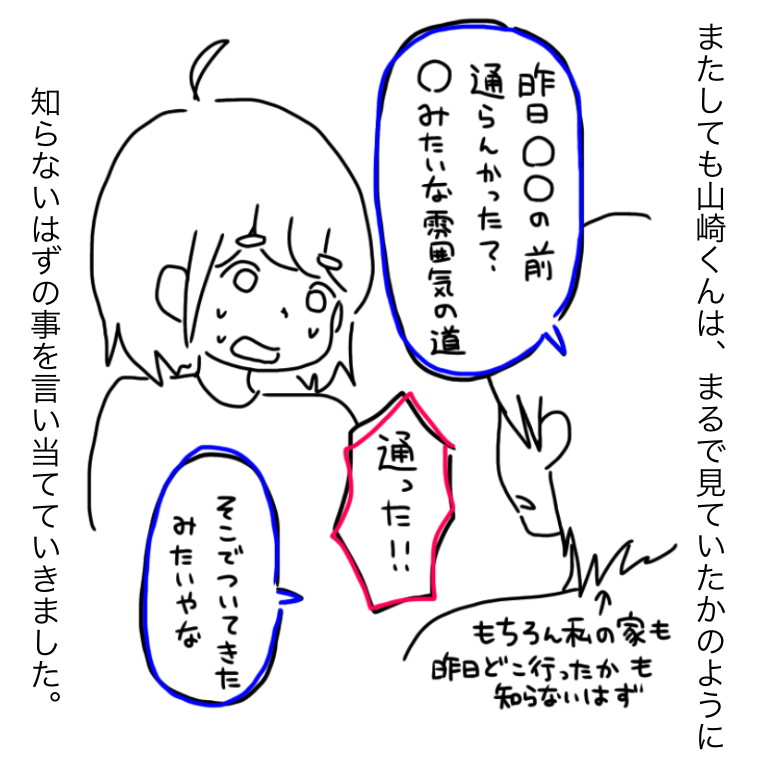 またしても山崎くんは、まるで見ていたかのように
昨日〇〇の前
通らんかった?
〇みたいな雰囲気の道
通った!!
そこでついてきた
みたいやな
↑
もちろん私の家も
昨日どこ行ったかも
知らないはず
知らないはずの事を言い当てていきました。